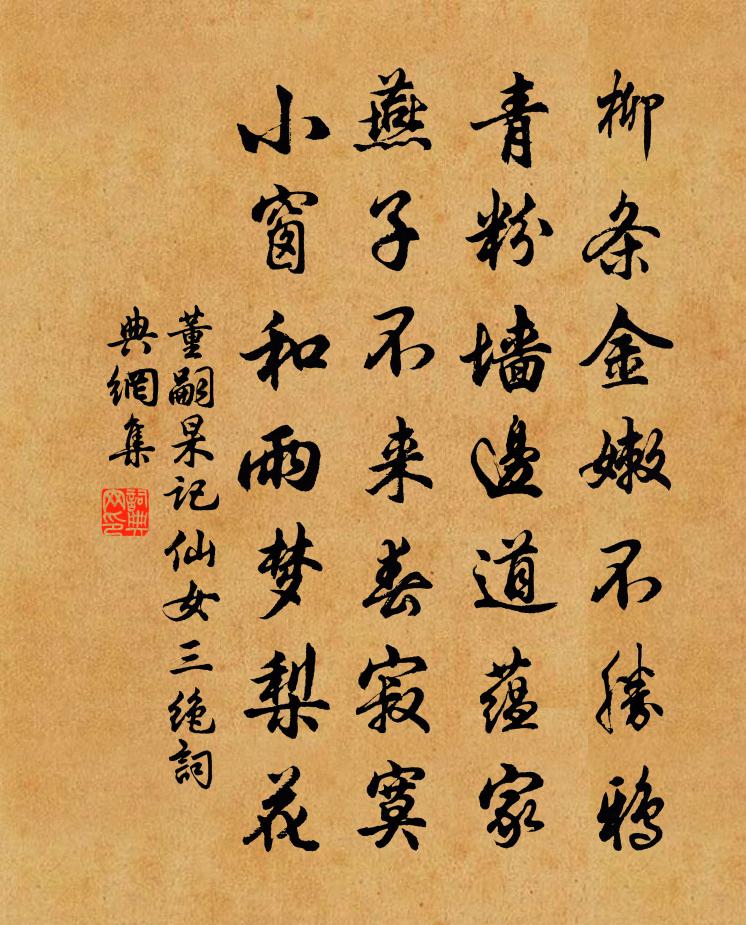 柳条金嫩不勝鴉
青粉墙邊道蕴家
燕子不来春寂寞
小窗和雨梦梨花
董嗣杲记仙女三绝詞
典網集
詞典网印